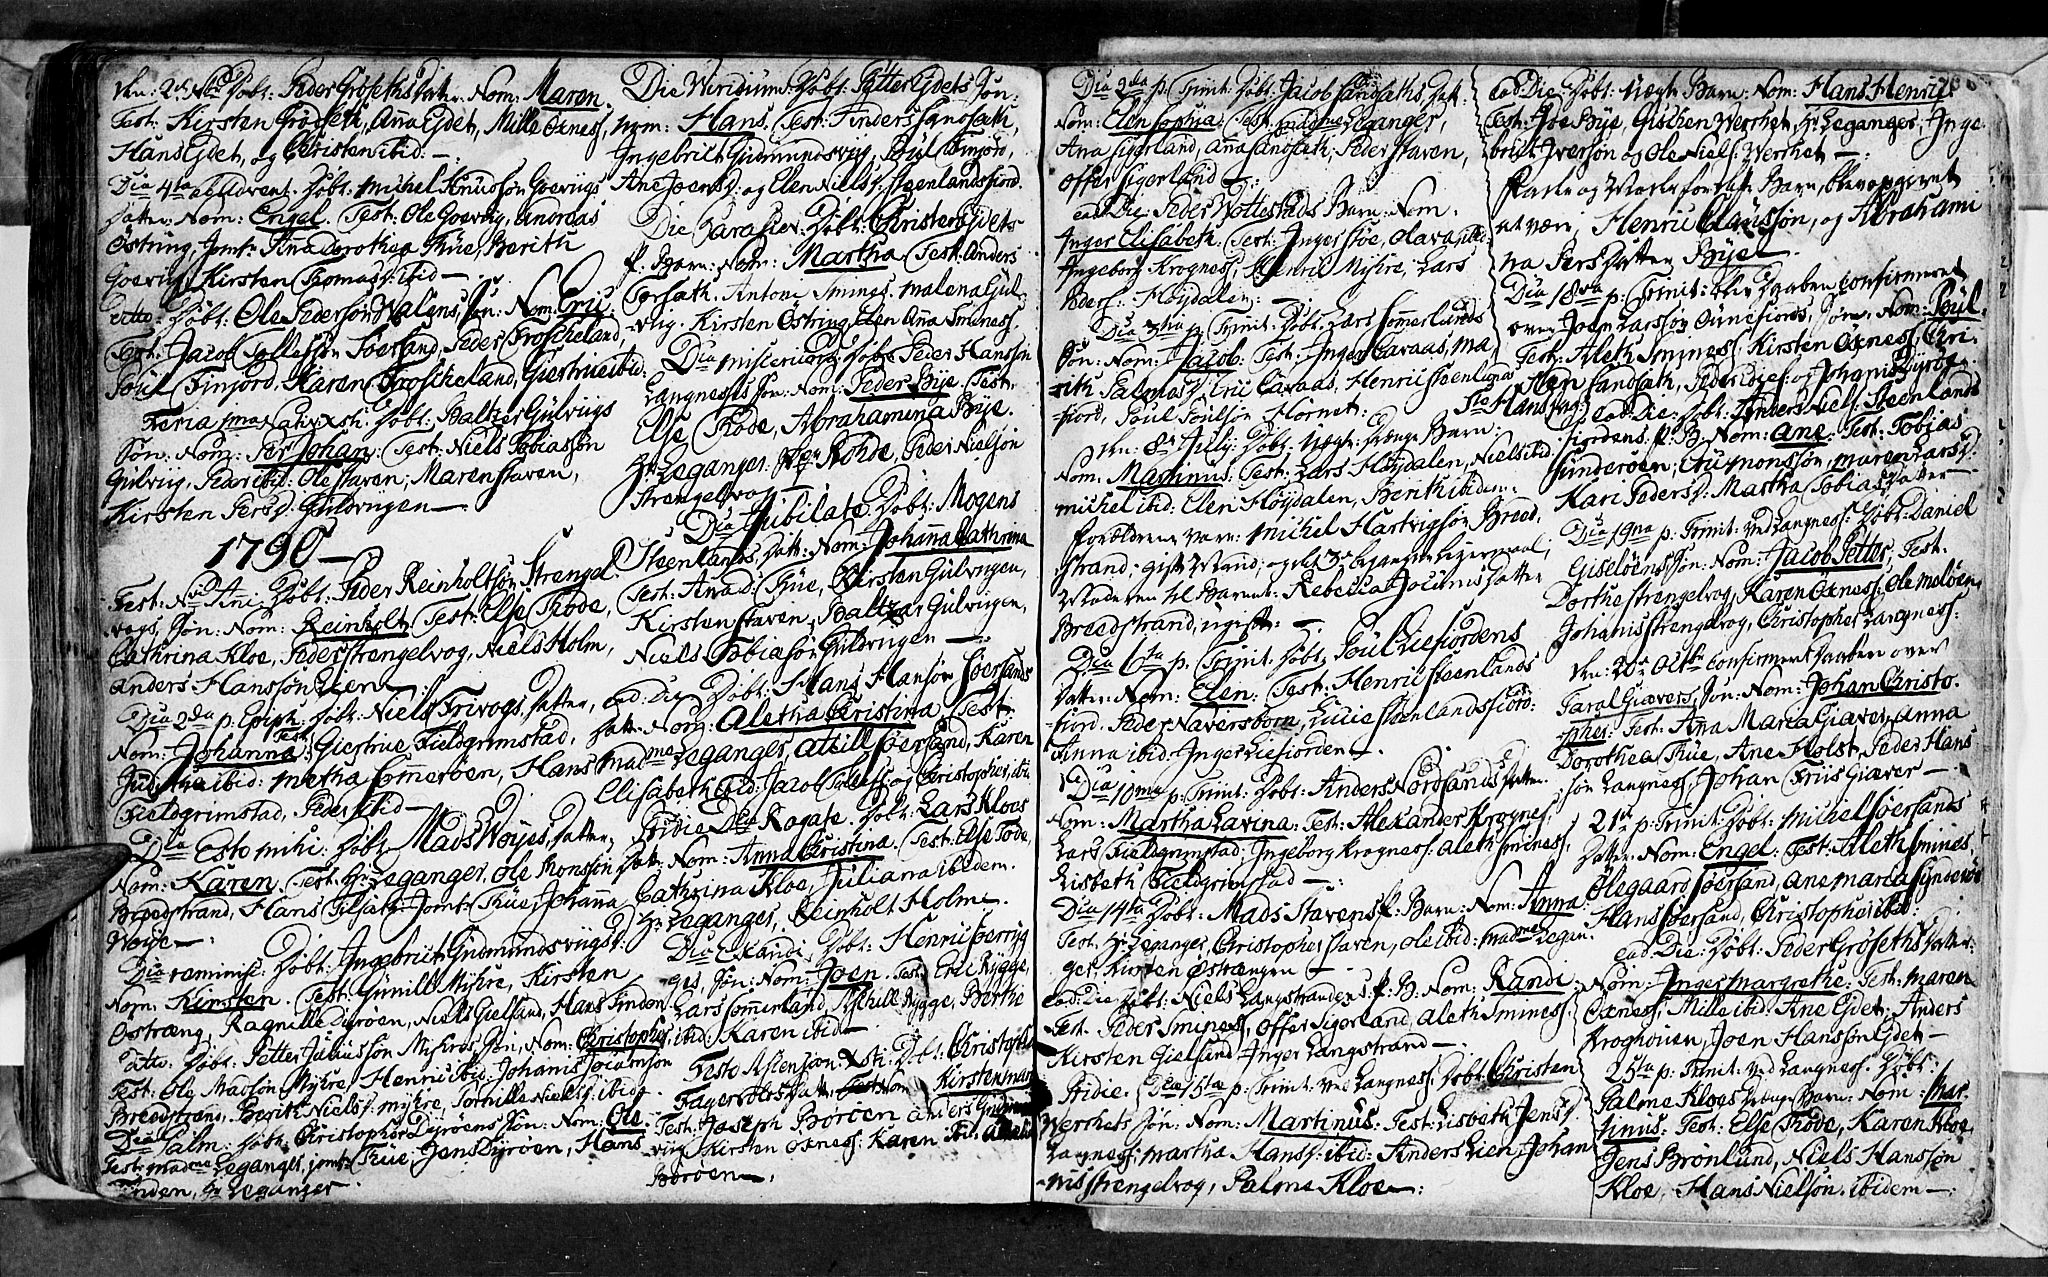 Peder Grøseths Datter Nom: Maren.
Test: Kirsten Grødseth, Ana Ejdet, Mille Oxnes,
Hans Ejdet, og Christen ibid. —
Dia 4ta Advent. Døbt: Michel Knudsøn Goeviigs
Datter Nom: Engel. Test: Ole Goevig, Andreas
Østring, Jomf: Anna Dorothea Thüe, Berith
Goevig, Kirsten Thomasd: ibid —
Ditto Døbt: Ole Pedersøn Valens, Søn: Nom: Eric.
Test: Jacob Tollefsøn Soersand, Peder Froscheland,
Poül Finjord, Karen Froscheland, Giertrue ibid:
Feria 1ma Nat: Xsti: Døbt: Baltzer Gülviigs
Søn: Nom: Per Johan: Test: Niels Tobiasøn
Gülviig, Peder ibid: Ole Staven, Maren Staven,
Kirsten Persd: Gülvigen —
1790 —
Fest: Nvi Ani: Døbt: Peder Reinholtsøn Strengel-
vogs, Søn: Nom: Reinholt. Test: Else Rode,
Cathrina Kloe, Peder Strengelvog, Niels Holm,
Anders Hanssøn Lien —
Dia 2da p. Epiph: Døbt: Niels Frivogs Datter,
Nom: Johanna Test: Giertrue Fieldgrimstad,
Judetha ibid: Metha Somerøen, Hans
Fieldgrimstad, Peder ibid —
Dia Esto mihi: Døbt: Mads Woyes Datter,
Nom: Karen. Test: Hr Leganger, Ole Monssøn
Breedstrand, Hans Tilsat, Jomf: Thüe, Johanna
Woije —
Dia reminisc: Døbt: Ingebrict Gudmundsviigs D:
Nom: Kirsten. Test: Günill Myhre, Kirsten
Ostræng, Ragnille Dyrøen, Niels Gielsund, Hans Finden
Ditto Døbt: Petter Juliussøn Myhres, Søn, Nom: Christopher
Test: Ole Madsøn Myhre, Henric ibid, Johanis Joculmsøn
Breedstrand, Berith Nielsd: Myhre, Pernille Nielsd: ibid.
Dia Palm: Døbt: Christopher Dyrøens Søn: Nom: Ole.
Test: Madme Leganger, Jomf: Thüe, Jens Dyrøen, Hans
Finden, Hr Leganger.
Die Viridium: Døbt: Petter Ejdets Søn:
Nom: Hans. Test: Finder Sandsath,
Ingebrict Gudmundsviig, Poül Finjord,
Ane Joensd: og Elen Nielsd: Steenlandsfiord.
Die Parasiev. Døbt: Christen Ejdets
P. Barn: Nom: Martha Test: Anders
Forsath. Antone Smines. Malena Gül-
viig. Kirsten Østring, Elen Ana Smines.
Dia Misericord: Døbt: Peder Hanssøn
Langnesses Søn: Nom: Peder Bye. Test:
Else Rode, Abrahamina Bye.
Hr Leganger. Rohde, Peder Nielsøn
Strengelvog —
Dia Jubilate: Døbt: Mogens
Steenlands Datt: Nom: Johanna Cathrina
Test: Ana D: Thüe, Kirsten Gülvigen,
Kirsten Staven, Baltzar Gülvigen,
Niels Tobiasøn Gülvigen —
ead: Die Døbt: Hans Hansøn Soersands
Datt: Nom: Aletha Christina Test:
Madme Leganger, Attill Soersand, Karen
Elisabeth ibid: Jacob Tollefs: og Christopher ibid:
Pridie Die Rogate. Døbt: Lars Kloes
Datt: Nom: Anna Christina. Test: Else Rode,
Cathrina Kloe, Juliana ibidem.
Hr Leganger, Reinholt Holm.
Dia Exaudi, Døbt: Henric Berryg
ges, Søn: Nom: Joen. Test: Eric Rygge,
Lars Somerland, Achille Rygge, Berthe
ibid: Karen ibid —
Festo Ascension: Xsti: Døbt: Christopher
Fagervolls Datt: Nom: Kirsten Mar
Test: Joseph Børøen Anders Gudmund
viig Kirsten Oxness: Karen ibid. Amalia
Børøen —
Dia 2da p. Trinit: Døbt: Jacob Sandsaths Datt:
Nom: Elen Sophia: Test: Madme Leganger,
Ana Sigerland, Ana Sandsath, Peder Staven,
Offer Sigerland —
ead: Die: Peder Vottestads Barn: Nom:
Inger Elisabeth. Test: Inger Støe, Olava ibid.
Ingeborg Krogness, Henric Myhre, Lars
Peders: Høydalen: —
Dia 3tia p. Trinit: Døbt: Lars Somerlands
Søn: Nom: Jacob: Test: Inger Caraas, Ma-
rith Salmasd: Eric Caraas, Henric Steenlands-
fiord, Poul Poulsøn Hornet:
den: 8de Jüly: Døbt: Uægte Drænge Barn:
Nom: Martinus: Test: Lars Høydalen, Niels ibid
Michel ibid: Elen Høydalen, Berith ibidem:
Forældrene vare: Michel Hartvigsøn Breed-
strand, gift Mand, og det 3de begangne Leyermaal;
Moderen til Barnet: Rebecca Jocumsdatter
Breedstrand, ugift. —
Dia 6ta p. Trinit: Døbt Poül Liefiordens
Datter: Nom: Elen: Test: Henric Steenlands
fiord. Peder Naversborn, Lucie Steenlandsfiord:
Anna ibid: Inger Liefiorden —
Dia 10ma p: Trinit: Døbt: Anders Nordsands Datter
Nom: Martha Lavina: Test: Alexander Krognes:
Lars Fieldgrimstad, Ingeborg Krogness: Aleth Sminess,
Lisbeth Fieldgrimstad —:
Dia 14ta Døbt: Mads Stavens P: Barn: Nom: Anna.
Test. Hr Leganger, Christopher Staven, Ole ibid: Madme Legan-
ger, Kirsten Østrængen —
ead: Die Døbt: Niels Langstrandens P: B: Nom: Randi.
Test: Peder Smines, Offer Sigerland, Aleth Smines,
Kirsten Gielsund, Inger Langstrand —
Pridie: Dia 15ta p: Trinit: ved Langness: Døbt: Christen
Werchets Søn: Nom: Martinus: Test: Lisbeth Jensd:
Langness: Martha Hansd: ibid: Anders Lien, Johan
nis Strengelvog, Palme Kloe —:
ead: Die: Døbt: Uægte Barn: Nom: Hans Henric
Test: Joe Bye, Gischen Werchet, Hr Leganger, Inge-
brict Iversøn og Ole Niels: Werchet —:
Fader og Moder for dette Barn, blev opgivet
at være, Henric Clausson, og Abrahami
na Persdatter Byel —
Dia 18va p: Trinit: blev Daaben confirmeret
over Joen Larssøn Oxnefiords, Søn: Nom: Poül.
Test: Aleth Smines, Kirsten Oxness, Chri-
sten Sandsath, Peder Edes: og Johanis
ead: Die: Døbt: Anders Niels: Steenlands
fiordens P. B. Nom: Ane. Test: Tobias
Sunderøen; Eric Monssøn, Maren Larsd:
Kari Pedersd: Martha Tobiasdatter
Dia 19na p: Trinit: ved Langness: Døbt: Daniel
Giseløens Søn: Nom: Jacob Petter, Test:
Dorthe Strengelvog, Karen Oxness: Ole Meløen
Johanis Strengelvog, Christopher Langness:
den: 20de Octbr confirmert Daaben over
Faral Giævers, Søn: Nom: Johan Christo-
pher: Test: Anna Maria Giæver, Anna
Dorothea Thüe, Ane Holst, Peder Hans
søn Langness, Johan Friis Giæver —
21de p: Trinit: Døbt: Michel Soersands
Datter: Nom: Engel: Test: Aleth Smines,
Olegaard Soersand, Ane Maria Synderøe
Hans Soersand, Christopher ibid:
ead: Die: Døbt: Peder Grøseths Datter:
Nom: Inger Margrethe: Test: Maren
Oxness, Mille ibid: Ane Ejdet, Anders
Kroghouen, Joen Hansson Ejdet —
25ta p: Trinit: ved Langness: Døbt:
Palme Kloes Drænge Barn: Nom: Mar-
tinus: Test: Else Rode, Karen Kloe,
Jens Brønlund, Niels Hanssøn
Kloe, Hans Nielsøn ibidem —: